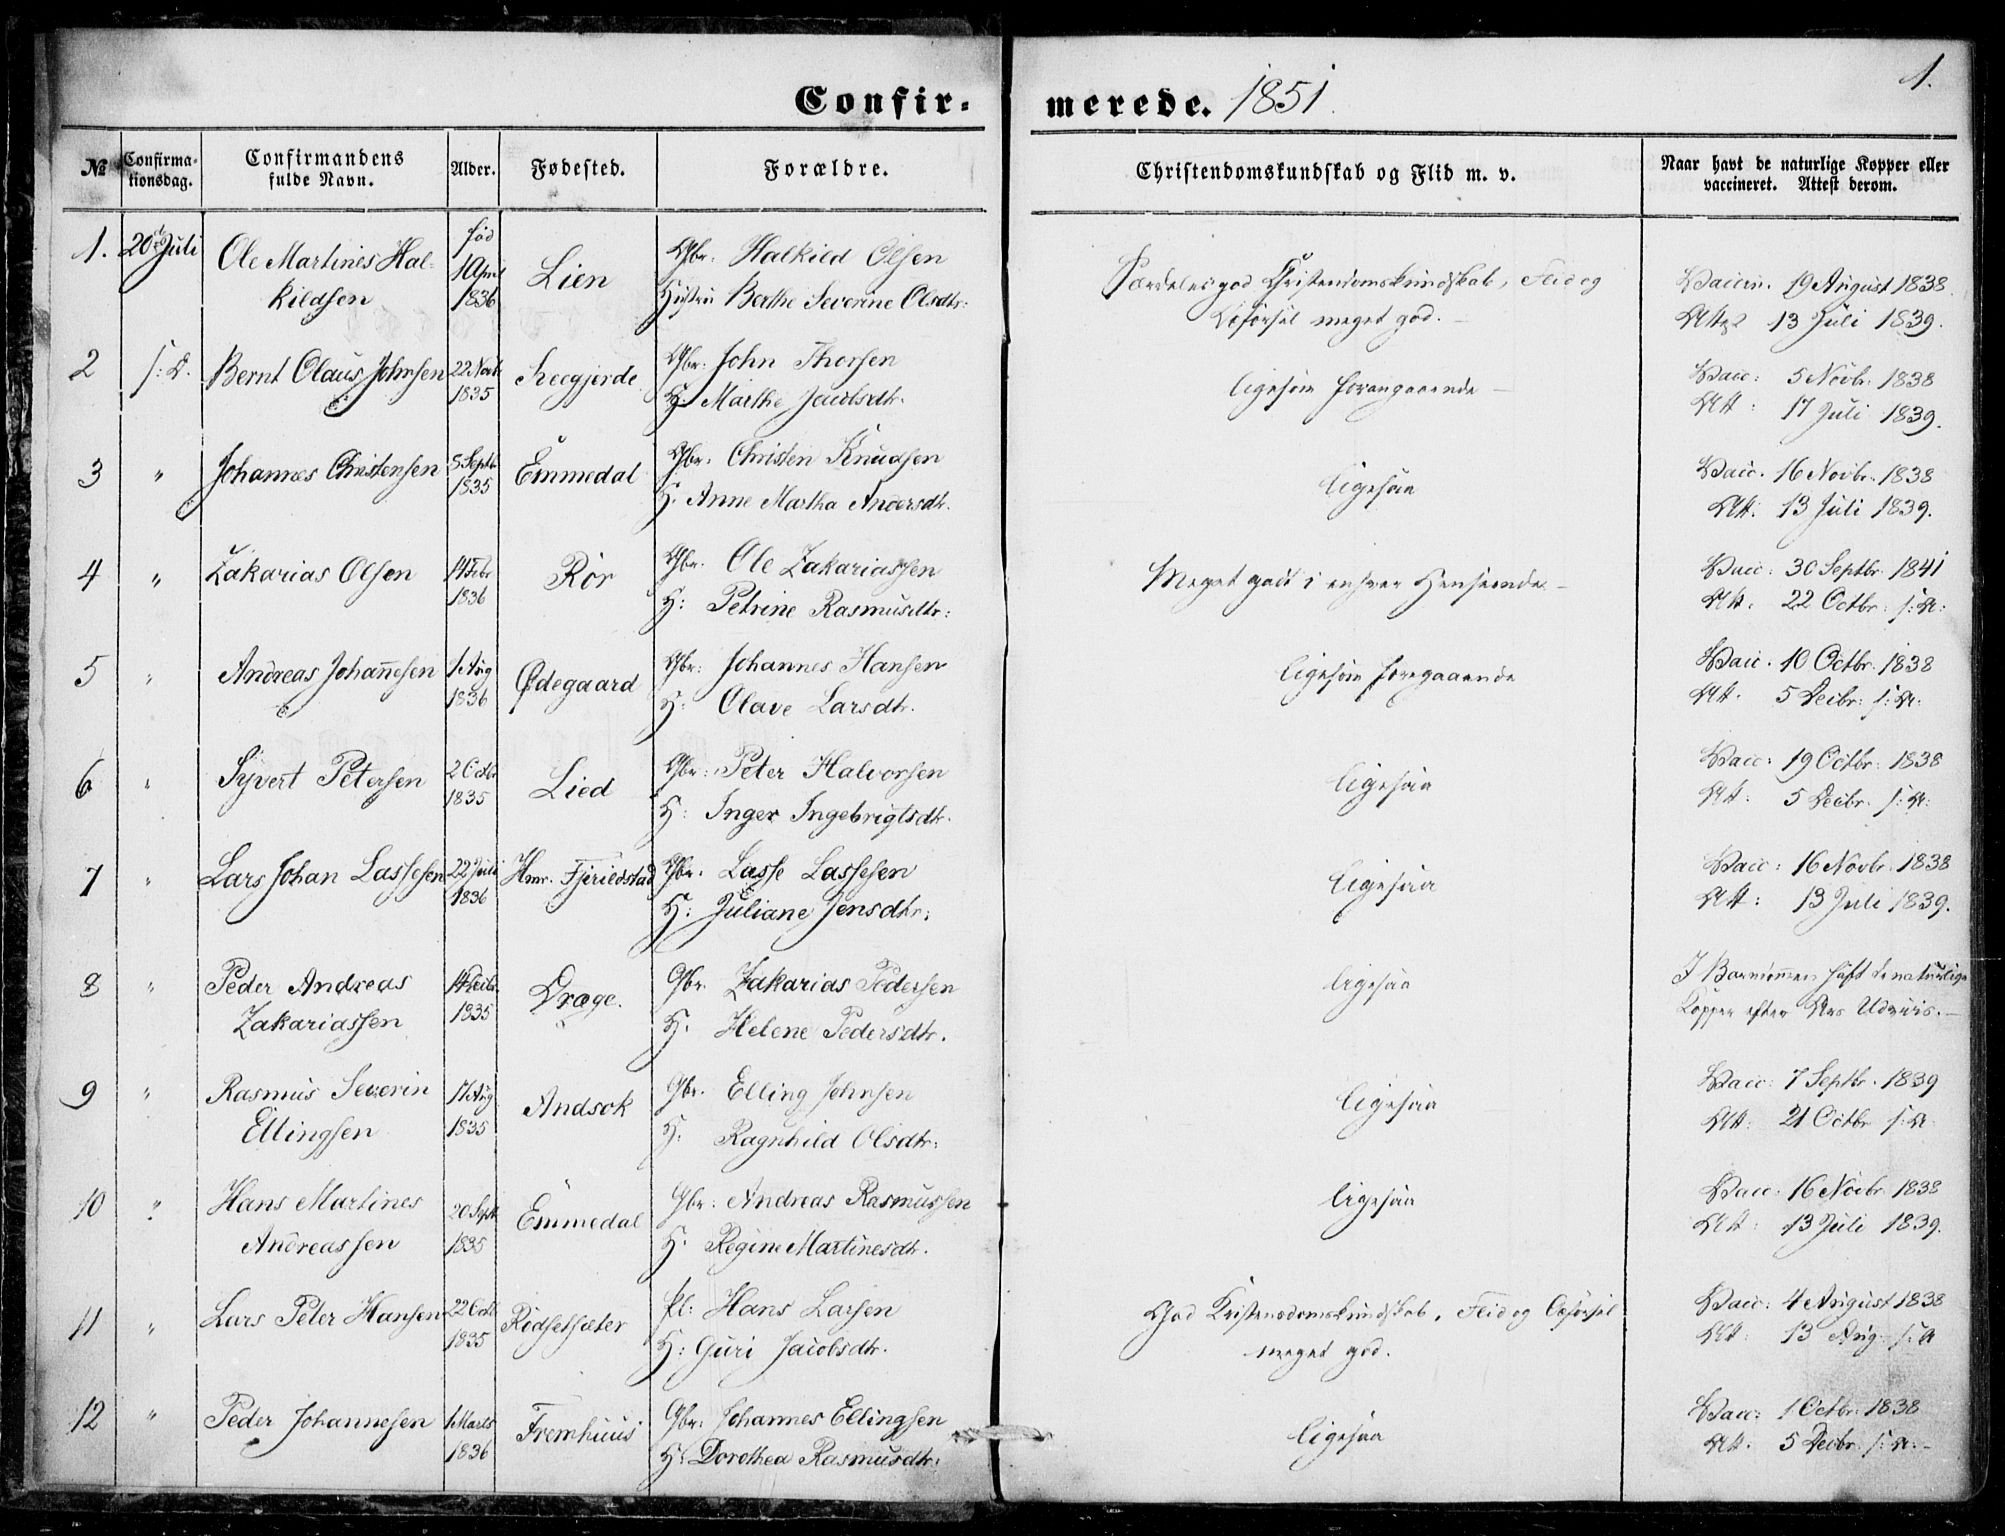 Confir-
merede. 1851.
1.
№
Confirma-
tionsdag.
Confirmandens
fulde Navn.
Alder.
Fødested.
Forældre.
Christendomskundskab og Flid m. v.
Naar havt de naturlige Kopper eller
vaccineret. Attest derom.
1. 20de Juli Ole Martines Hal-
kildsen
fød
1 April
1836
Lien
Gbr. Halkild Olsen
Hustru Berthe Severine Olsdtr:
Særdeles god Christendomskundskab, Flid og
Opførsel meget god.
Vaccin. 19 August 1838.
Att. 13 Juli 1839.
2 s: D. Bernt Olaus Johnsen
22 Novb
1835
Gbr. John Thorsen
H. Marthe Jacobsdtr.
ligesom foregaaende
Vacc: 5 Novbr. 1838
Att: 17 Juli 1839.
3 " Johannes Christensen
5 Septb.
1835
Emmedal
Gbr. Christen Knudsen
H. Anne Martha Andersdtr.
ligesaa
Vacc. 16 Novbr. 1838
Att. 13 Juli 1839.
4 " Zakarias Olsen
14 Febr
1836
Rör
Gbr. Ole Zakariassen
H: Petrine Rasmusdtr:
Meget godt i enhver Henseende
Vacc: 30 Septbr. 1841
Att. 22 Octbr. s: A:
5 " Andreas Johan̄esen
1 Aug
1836
Ødegaard
Gbr: Johannes Hansen
H: Olave Larsdtr.
ligesom foregaaende
Vacc. 10 Octbr. 1838
Att. 5 Decbr: s: A:
6 " Syvert Petersen
2 Octb
1835
Lied
Gbr: Peter Halvorsen
H: Inger Ingebrigtsdtr.
ligesaa
Vacc: 19 Octbr: 1838
Att. 5 Decbr. s: A:
7 " Lars Johan Lassesen
22 Juli
1836
Hmr. Fjerildstad
Gbr. Lasse Lassesen
H: Juliane Jensdtr:
ligesaa
Vacc: 16 Novbr. 1838
Att: 13 Juli 1839.
8 " Peder Andreas
Zakariassen
14 Decbr
1835
Dræge.
Gbr. Zakarias Pedersen
H. Helene Pedersdtr.
ligesaa
I havt de naturlige
Kopper efter Udviis.
9 " Rasmus Severin
Ellingsen
17 Aug
1835
Andsok
Gbr. Elling Johnsen
H. Ragnhild Olsdtr:
ligesaa
Vacc: 7 Septbr. 1839
Att: 21 Octbr s: A:
10 " Hans Martines
Andreassen
20 Sept
1835
Emmedal
Gbr: Andreas Rasmussen
H. Regine Martinesdtr.
ligesaa
Vacc: 16 Novbr. 1838
Att: 13 Juli 1839.
11 " Lars Peter Hansen
22 Octb
1835
Rødsetsæter
Pl: Hans Larsen
H: Guri Jacobsdtr.
God Kristendomskundskab, Flid og Opførsel
meget god.
Vacc: 4 August 1838
Att: 13 Aug: s: A
12 " Peder Johannesen
1 Marts
1836
Fremhuus
Gbr: Johannes Ellingsen
H: Dorothea Rasmusdtr:
ligesaa
Vacc: 1 Octbr: 1838
Att. 5 Decbr. s: A: